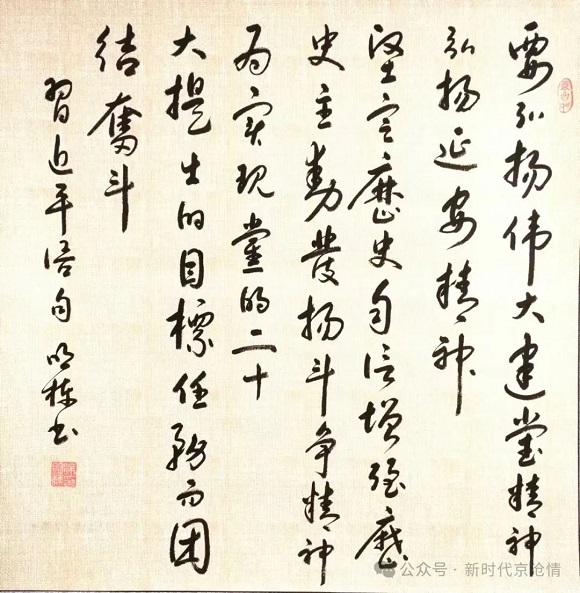 要弘扬伟大建党精神
弘扬延安精神
坚定历史自信增强歷
史主動發扬斗争精神
为实现黨的二十
大提出的目標任務而团
结奮斗
習近平语句 明栋书
公众号·新时代京沧情